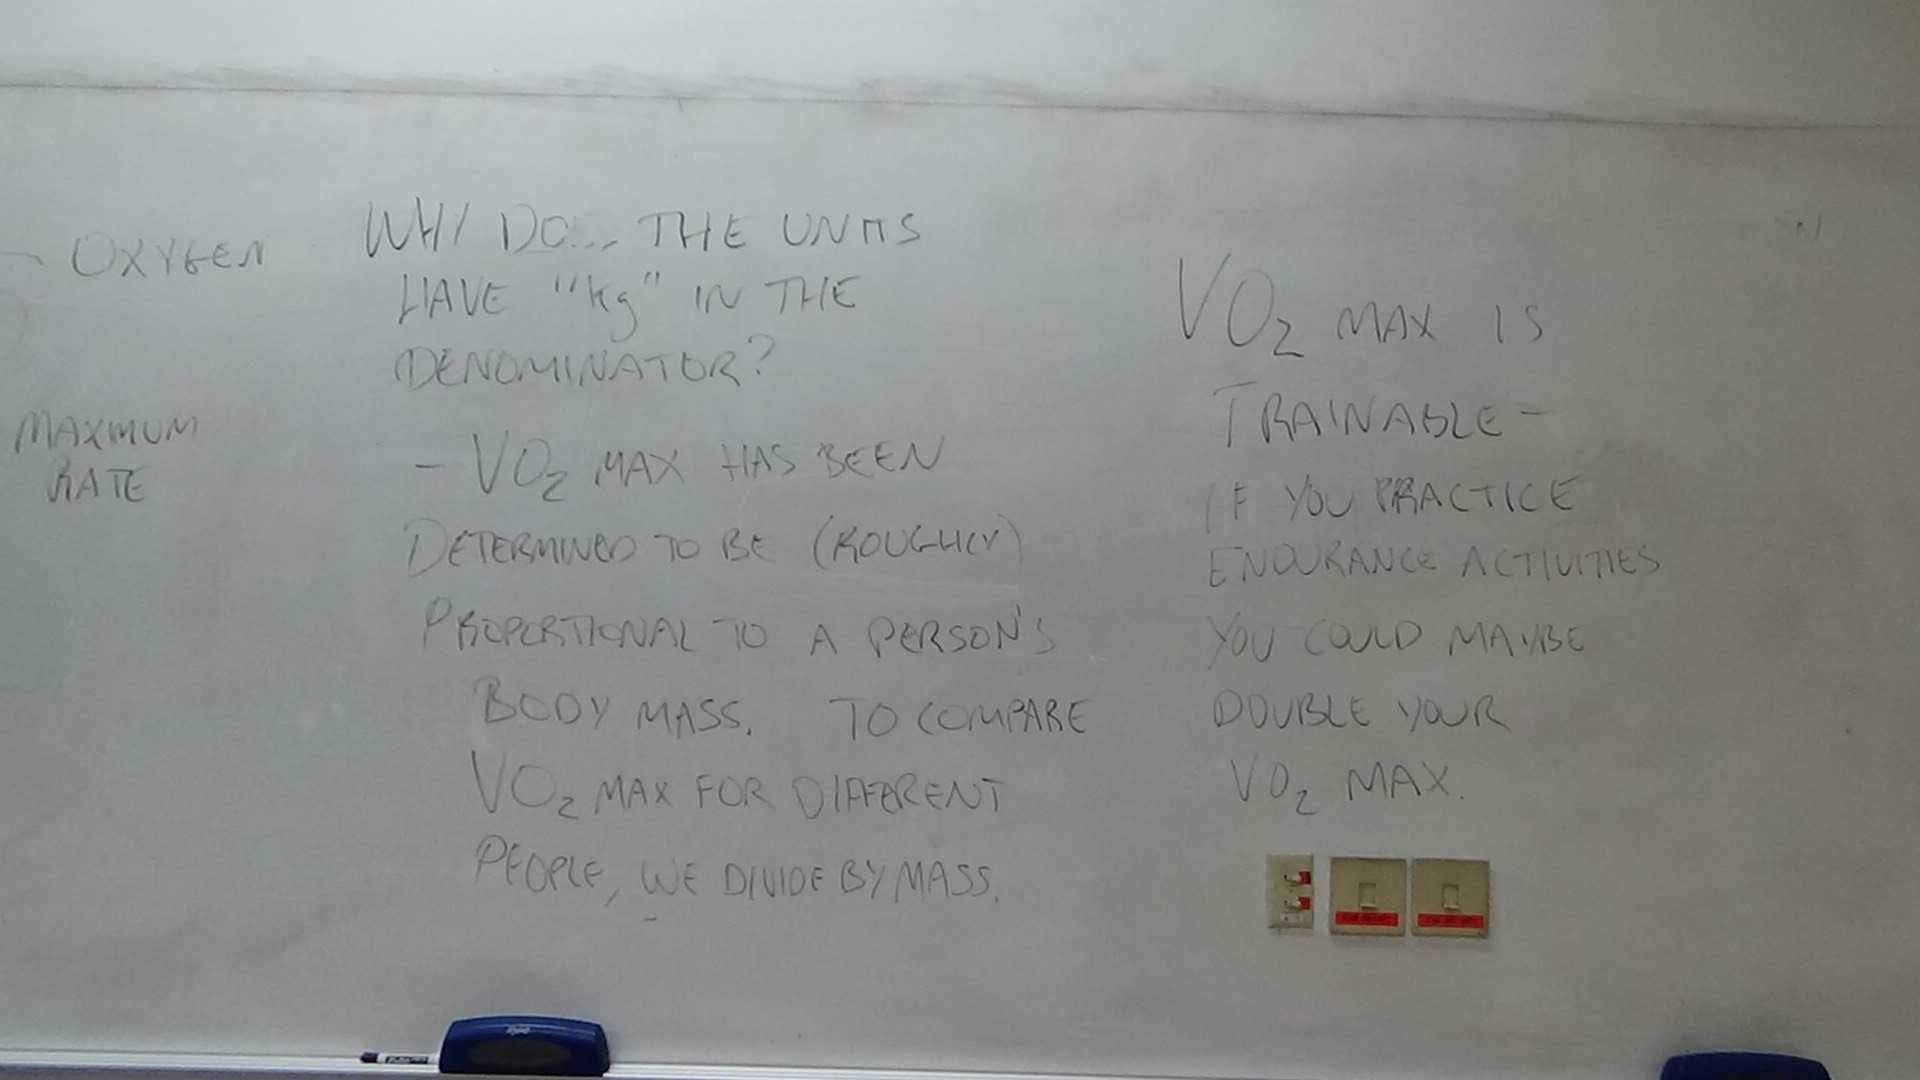 OXYGEN
MAXIMUM
RATE
WHY DO... THE UNITS
HAVE "kg" IN THE
DENOMINATOR?
- VO2 MAX HAS BEEN
DETERMINED TO BE (ROUGHLY)
PROPORTIONAL TO A PERSON'S
BODY MASS. TO COMPARE
VO2 MAX FOR DIFFERENT
PEOPLE, WE DIVIDE BY MASS.
VO2 MAX IS
TRAINABLE -
IF YOU PRACTICE
ENDURANCE ACTIVITIES
YOU COULD MAYBE
DOUBLE YOUR
VO2 MAX.